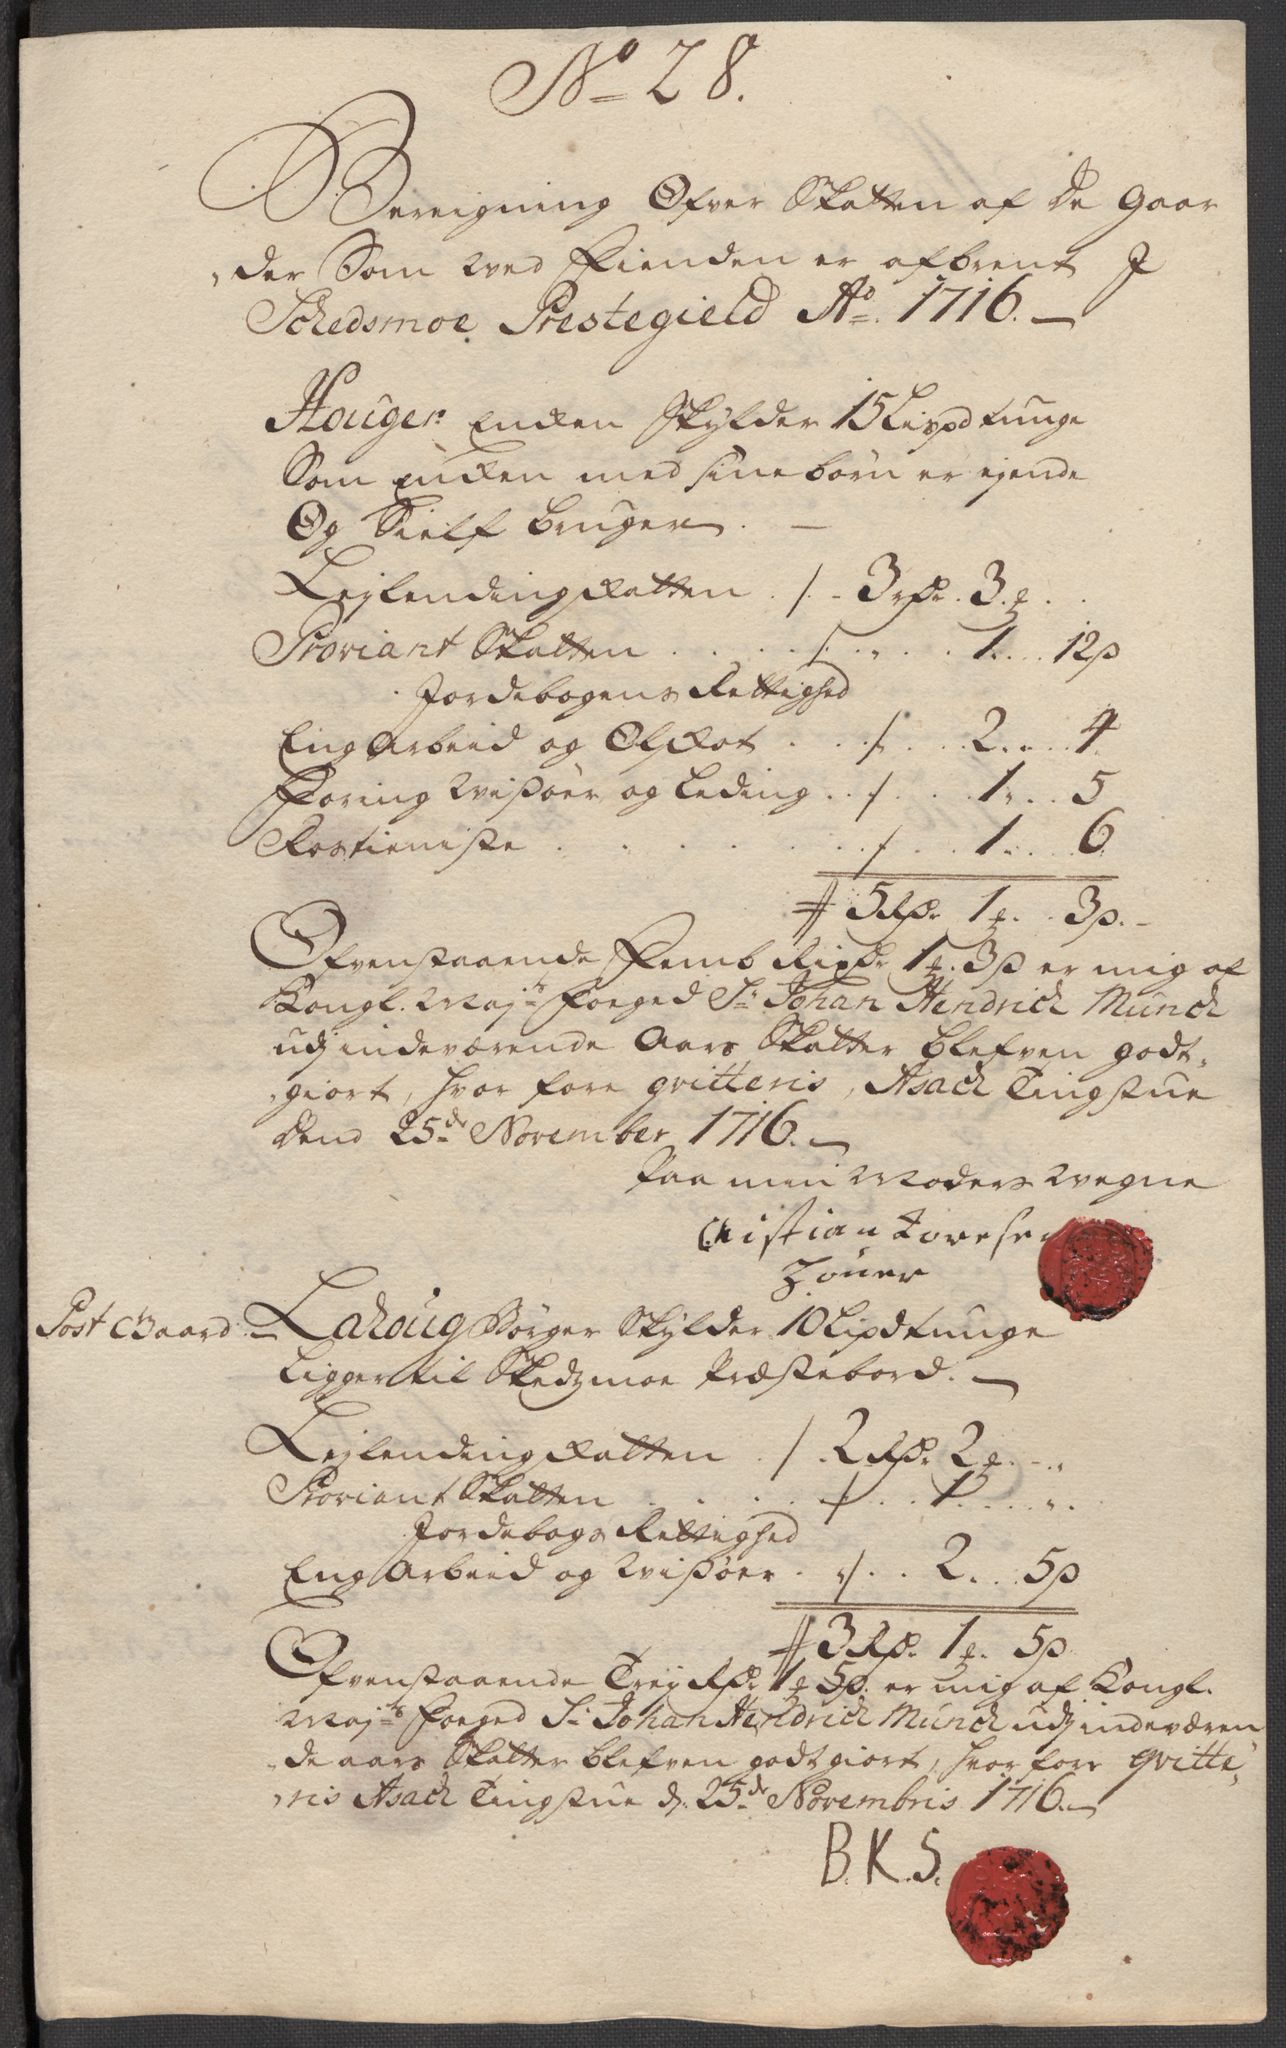 No 28.
Bereigning Ofver Skatten af de Gaar
der Som wed Fienden er afbrent J
Schedsmoe Prestegield Ao. 1716.
Houger: Enken Skylder 15 Lispd tunge
Som Enken med sine børn er ejende
Og Sielf bruger.
Lejlendingskatten . /. 3 rdr. 3 ₰.
Proviant Skatten . . . . /. „ . . 1. . . 12 β
Jordebogens Rettighed
Eng Arbeid og Olskot . . . /. . . 2. . . 4.
Foring Wissøer og Leding . . /. . . 1. . . 5
Rostieniste . . . . . /. . . 1. . . 6.
# 5 Rdr. 1 ₰. 3 β.
Ofvenstaaende Femb Rixdr. 1 ₰. 3 β er mig af
Kongl. Mayts Foeged Sr. Johan Hendrich Munch
udj indeværende Aars Skatter blefven godt
giort, hvor fore qvitteris, Asach Tingstue
dend 25de November 1716.
Paa min Moders Wegne
Cristian Tovesen
Houer
Post Gaard
Lahoug Børger Skylder 10 Lispd tunge
Ligger til Skedzmoe Præstebord.
Lejlendingskatten . /. 2 Rdr. 2 ₰. „
Proviant Skatten . . . . /. . . 1. . . „.
Jordebogs Rettighed
Eng Arbeid og Wissøer . /. . . 2. . . 5 β
# 3 Rdr. 1 ₰. 5 β
Ofvenstaaende Trej Rdr. 1 ₰ 5 β. er mig af Kongl.
Mayts Foeged Sr. Johan Hendrich Munch udj indeværen
de aars Skatter blefven godtgiort, hvor fore qvitte
ris Asach Tingstue d. 25de Novembris 1716.
B.K.S.